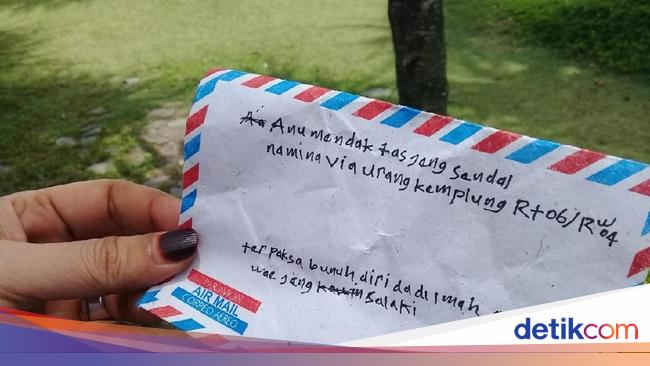 Aa Anu mendak tas jeng sendal
namina Via urang kemplung Rt 06/Rw 04
terpaksa bunuh diri da di imah
wae jeng kawin salaki
PAR AVION
AIR MAIL
CORREO AEREO
detikcom